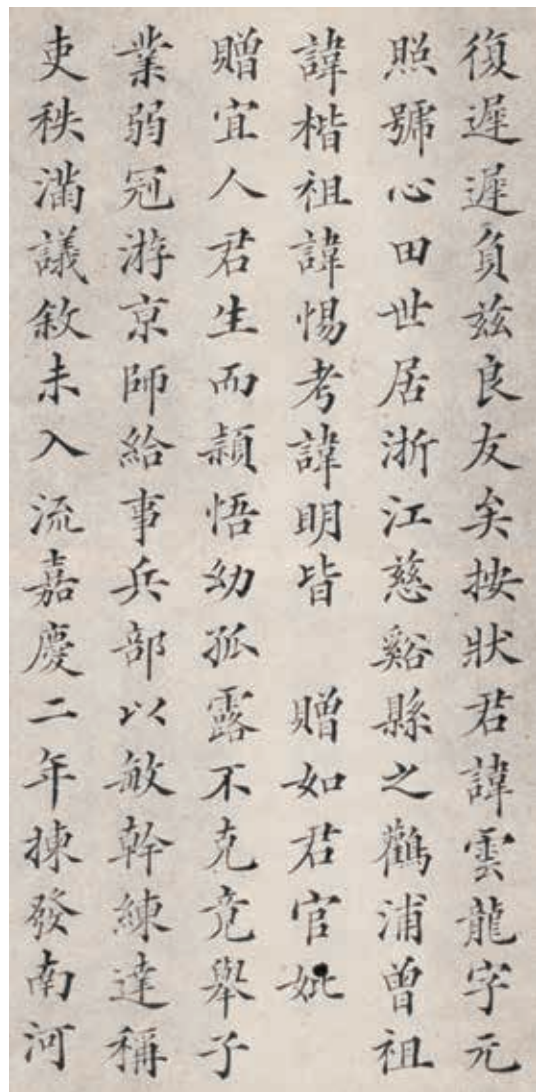 復遲遲負茲良友矣按狀君諱雲龍字元
照號心田世居浙江慈谿縣之鸛浦曾祖
諱楷祖諱惕考諱明皆 贈如君官妣
贈宜人君生而穎悟幼孤露不克竟舉子
業弱冠游京師給事兵部以敏幹練達稱
吏秩滿議敘未入流嘉慶二年揀發南河